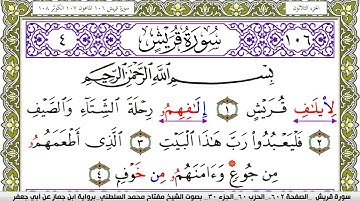 الجزء الثلاثون
سورة قريش ١٠٦ الماعون ١٠٧ الكوثر ١٠٨
٤ سورة قريش ١٠٦
بسم الله الرحمن الرحيم
لِأِيلَٰفِ قُرَيْشٍ ١ إِلَٰفِهِمُۥ رِحْلَةَ الشِّتَآءِ وَالصَّيْفِ
٢ فَلْيَعْبُدُوا رَبَّ هَٰذَا الْبَيْتِ ٣ الَّذِى أَطْعَمَهُمُۥ
مِن جُوعٍ وَءَامَنَهُمُۥ مِن خَوْفٍ ٤
سورة قريش . الصفحة ٦٠٢ . الحزب ٦٠ . الجزء ٣٠ . بصوت الشيخ مفتاح محمد السلطني . برواية ابن جماز عن أبي جعفر